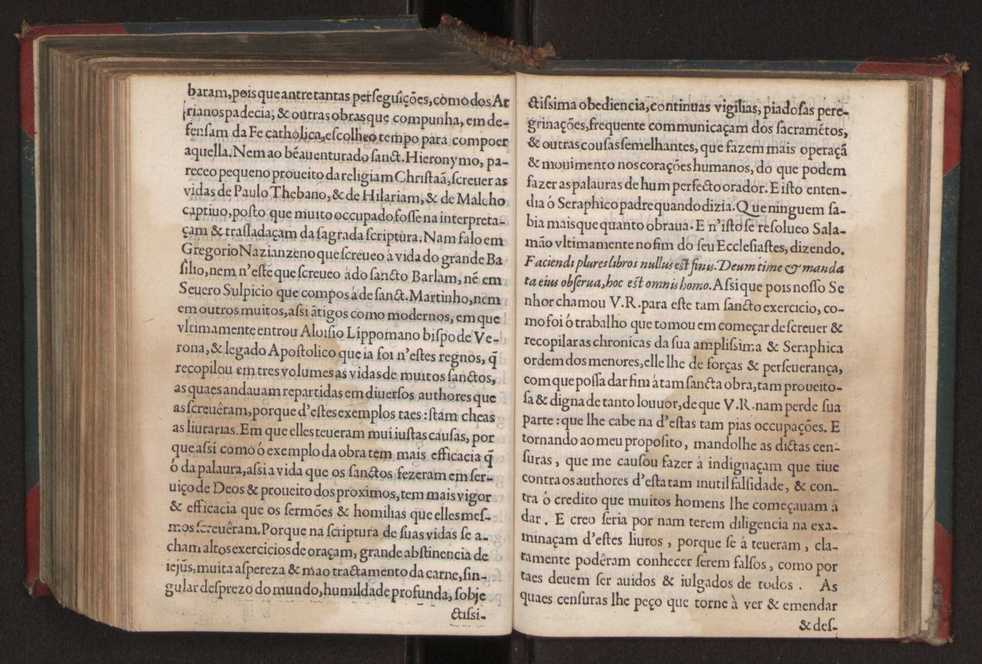 baram,pois que antre tantas perseguições,còmo dos Ar
rianos padecia, & outras obras que compunha, em de-
fensam da Fe catholica,escolheo tempo para compoer
aquella.Nem ao bẽauenturado sanct.Hieronymo, pa-
receo pequeno proueito da religiam Christaã,screuer as
vidas de Paulo Thebano, & de Hilariam, & de Malcho
captiuo,posto que muito occupado fosse na interpreta-
çam & trasladaçam da sagrada scriptura. Nam falo em
Gregorio Nazianzeno que screueo à vida do grande Ba
silio,nem n'este que screueo à do sancto Barlam, nẽ em
Seuero Sulpicio que compos à de sanct. Martinho,nem
em outros muitos,assi ãtigos como modernos, em que
vltimamente entrou Aloisio Lippomano bispo de Ve-
rona,& legado Apostolico que ia foi n'estes regnos, q̃
recopilou em tres volumes as vidas de muitos sanctos,
as quaes andauam repartidas em diuersos authores que
as screuêram,porque d'estes exemplos taes :stam cheas
as liurarias. Em que elles teueram mui iustas causas, por
que assi como ó exemplo da obra tem mais efficacia q̃
ó da palaura,assi a vida que os sanctos fezeram em ser-
uiço de Deos & proueito dos proximos,tem mais vigor
& efficacia que os sermões & homilias que elles mes-
mos screuêram.Porque na scriptura de suas vidas se a-
cham altos exercicios de oraçam, grande abstinencia de
iejũs,muita aspereza & mao tractamento da carne,sin-
gular desprezo do mundo,humildade profunda, sobje
ctissi-
ctissima obediencia,continuas vigilias, piadosas pere-
grinações,frequente communicaçam dos sacramẽtos,
& outras cousas semelhantes, que fazem mais operaçã
& mouimento nos corações humanos, do que podem
fazer as palauras de hum perfecto orador. E isto enten-
dia ó Seraphico padre quando dizia.Que ninguem sa-
bia mais que quanto obraua. E n'isto se resolueo Sala-
mão vltimamente no fim do seu Ecclesiastes, dizendo.
Faciendi plures libros nullus est finis. Deum time & manda
ta eius obserua, hoc est omnis homo. Assi que pois nosso Se
nhor chamou V.R. para este tam sancto exercicio, co-
mo foi ó trabalho que tomou em começar de screuer &
recopilar as chronicas da sua amplissima & Seraphica
ordem dos menores,elle lhe de forças & perseuerança,
com que possa dar fim à tam sancta obra,tam proueito-
sa & digna de tanto louuor,de que V.R. nam perde sua
parte : que lhe cabe na d'estas tam pias occupações. E
tornando ao meu proposito , mandolhe as dictas cen-
suras , que me causou fazer à indignaçam que tiue
contra os authores d'esta tam inutil falsidade, & con-
tra ó credito que muitos homens lhe começauam à
dar . E creo seria por nam terem diligencia na exa-
minaçam d'estes liuros , porque se à teueram , cla-
ramente podêram conhecer serem falsos, como por
taes deuem ser auidos & iulgados de todos . As
quaes censuras lhe peço que torne à ver & emendar
& des-